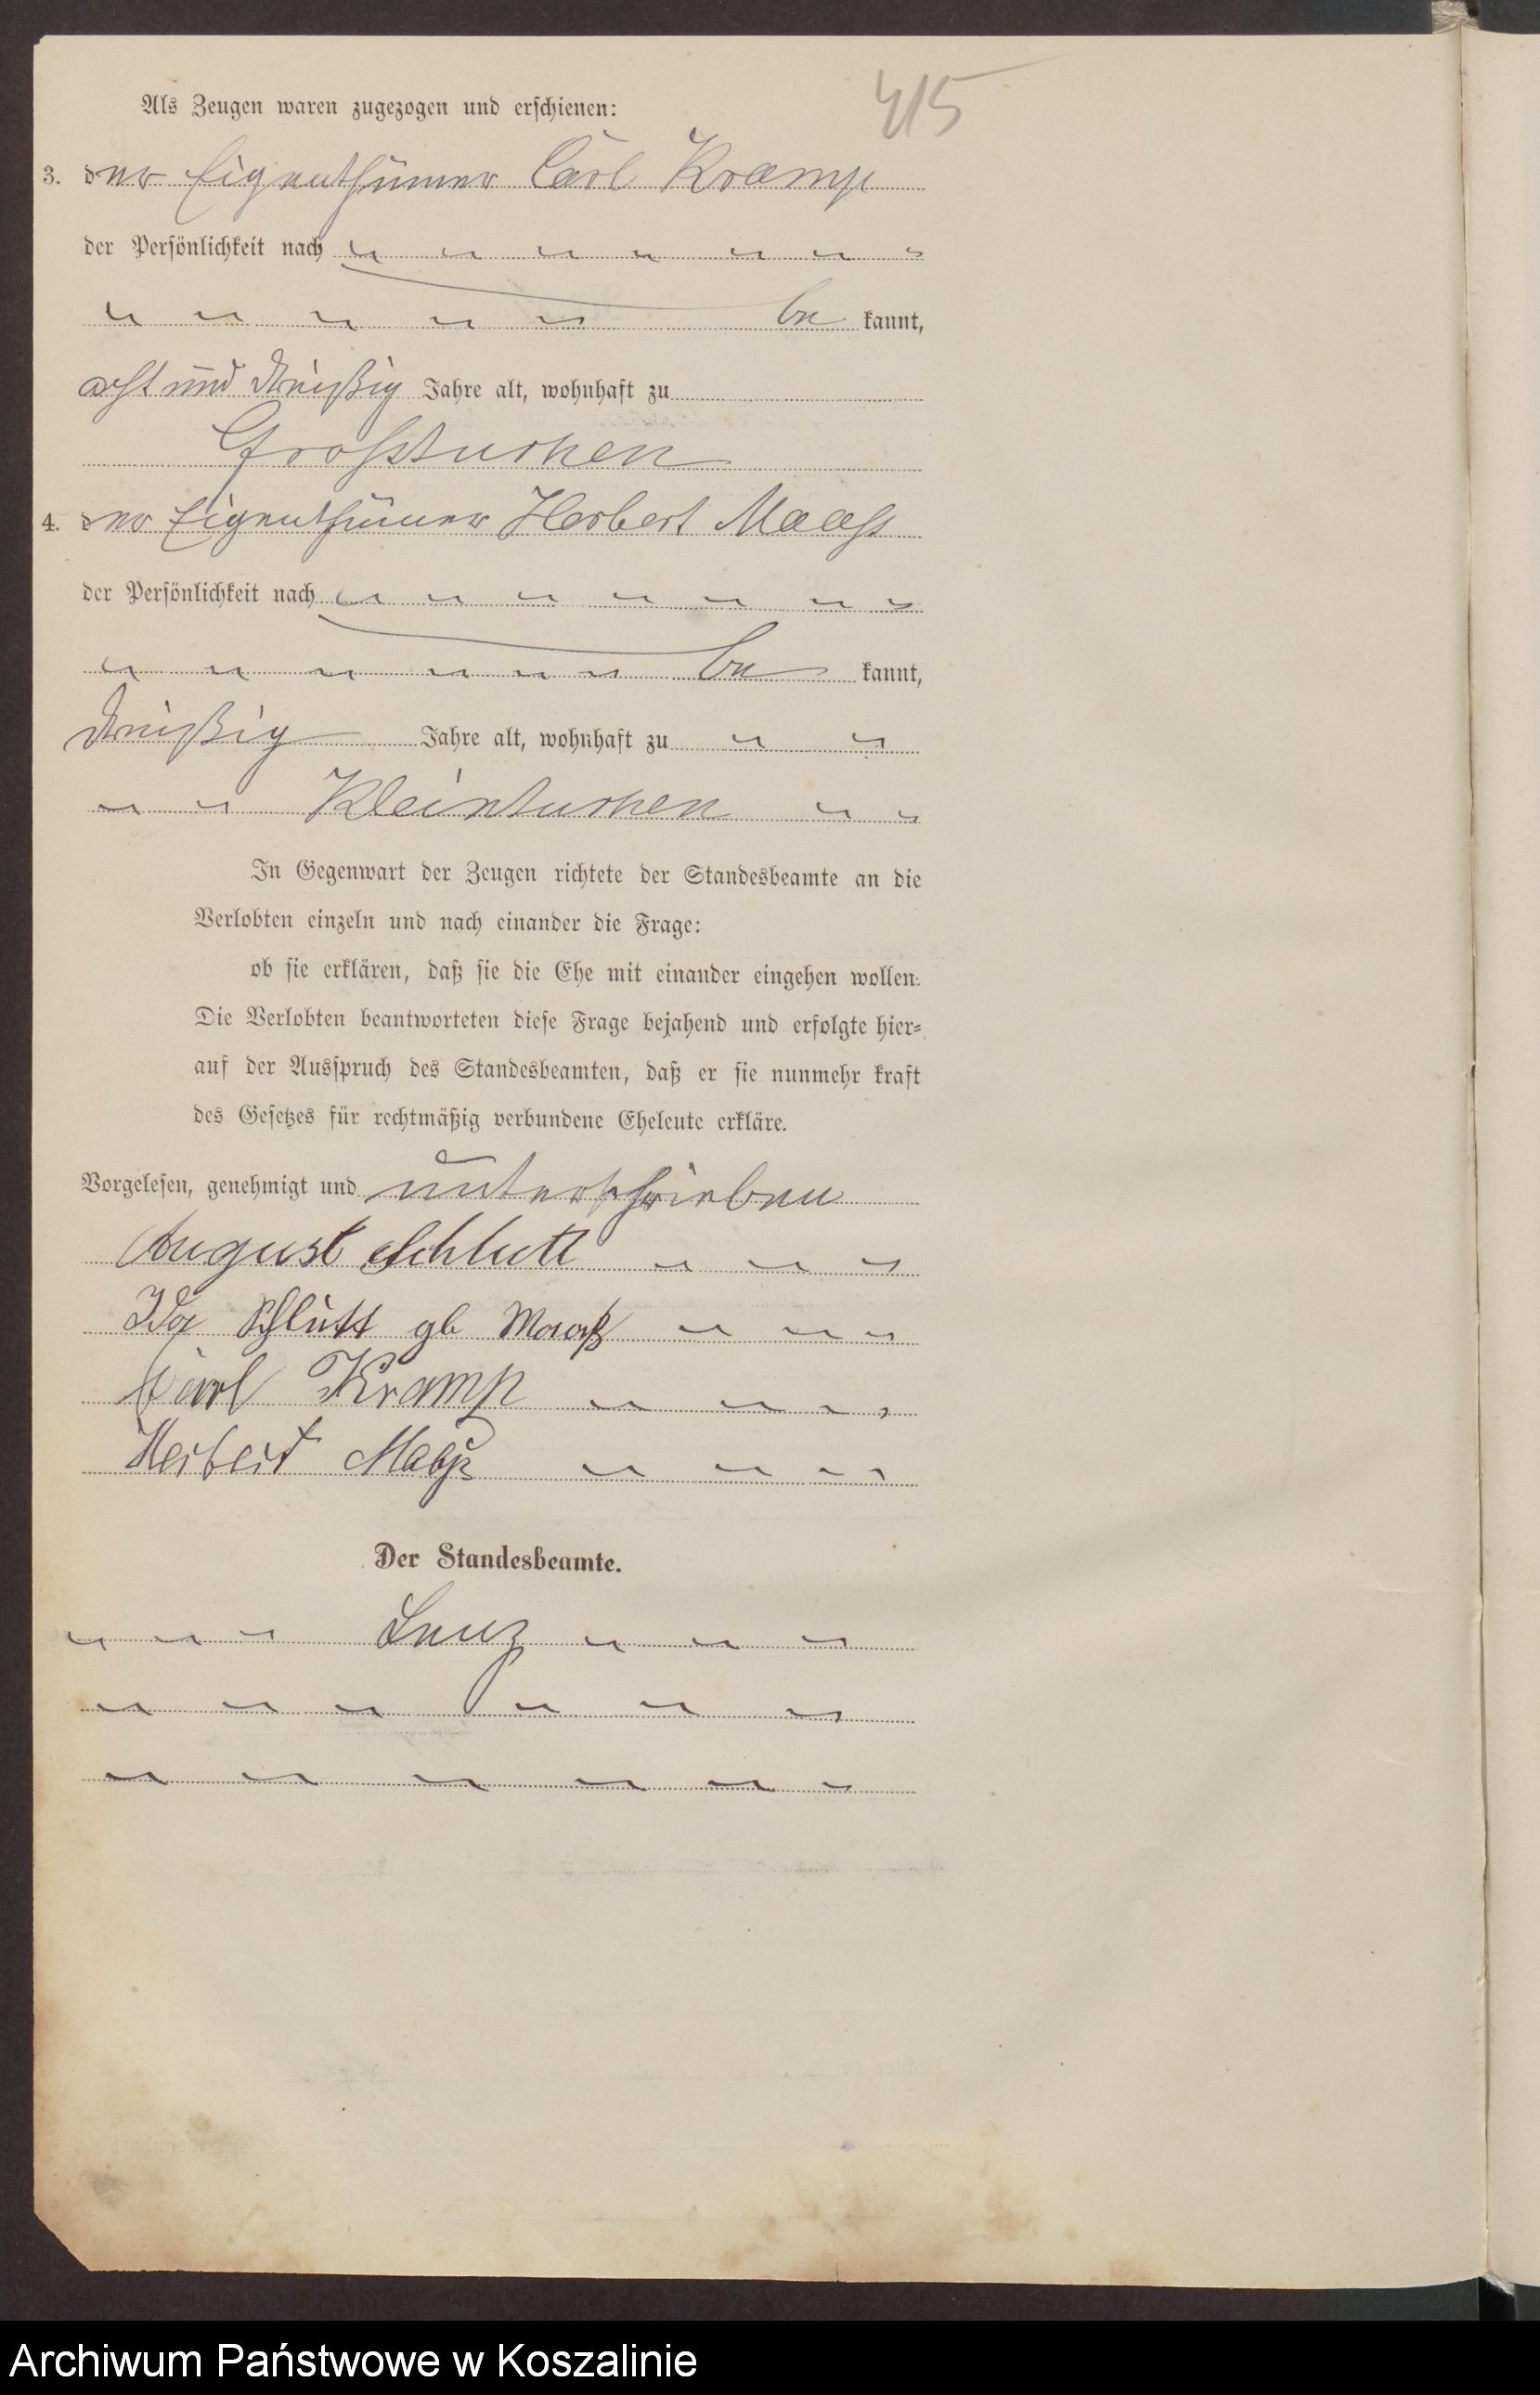 415
Als Zeugen waren zugezogen und erschienen:
3. der Eigenthümer Carl Kramp
der Persönlichkeit nach
be kannt,
acht und dreißig Jahre alt, wohnhaft zu
Großtuchen
4. der Eigenthümer Herbert Maaß
der Persönlichkeit nach
be kannt,
dreißig Jahre alt, wohnhaft zu
Kleintuchen
In Gegenwart der Zeugen richtete der Standesbeamte an die
Verlobten einzeln und nach einander die Frage:
ob sie erklären, daß sie die Ehe mit einander eingehen wollen.
Die Verlobten beantworteten diese Frage bejahend und erfolgte hier-
auf der Ausspruch des Standesbeamten, daß er sie nunmehr kraft
des Gesetzes für rechtmäßig verbundene Eheleute erkläre.
Vorgelesen, genehmigt und unterschrieben
August Schlutt
Ida Schlutt gb Maaß
Carl Kramp
Herbert Maaß
Der Standesbeamte.
Lenz
Archiwum Państwowe w Koszalinie